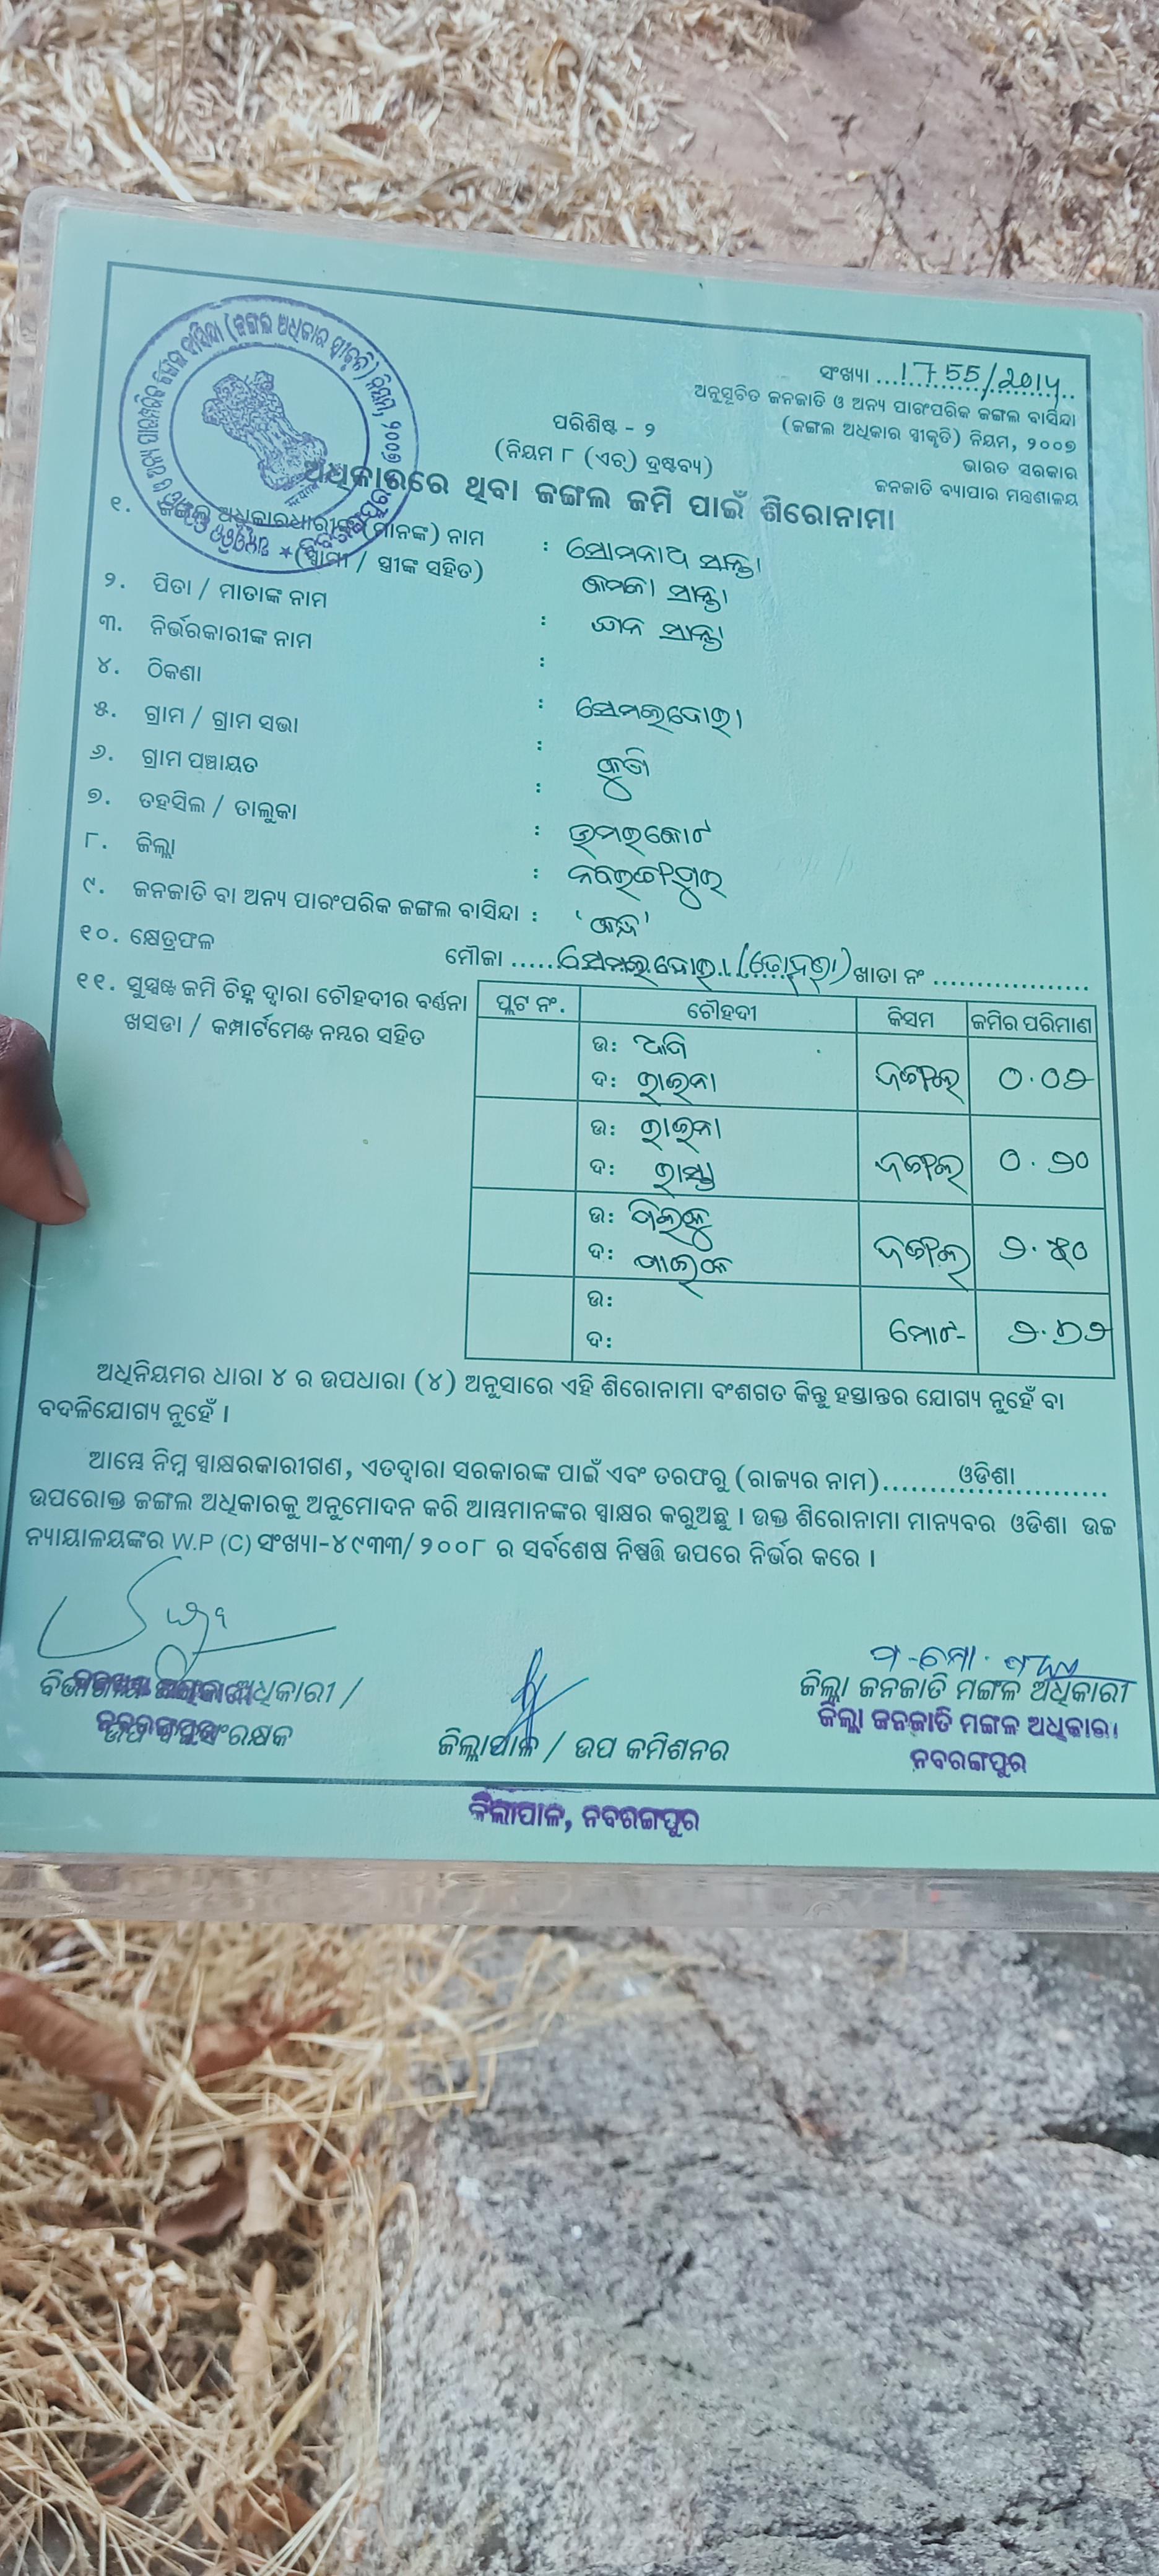 ସଂଖ୍ୟା ..1755/2014..
ଅନୁସୂଚିତ ଜନଜାତି ଓ ଅନ୍ୟ ପାରଂପରିକ ଜଙ୍ଗଲ ବାସିନ୍ଦା
(ଜଙ୍ଗଲ ଅଧିକାର ସ୍ୱୀକୃତି) ନିୟମ, ୨୦୦୭
ଭାରତ ସରକାର
ଜନଜାତି ବ୍ୟାପାର ମନ୍ତ୍ରଣାଳୟ
ପରିଶିଷ୍ଟ - ୨
(ନିୟମ ୮ (ଏଚ୍) ଦ୍ରଷ୍ଟବ୍ୟ)
ଅଧିକାରରେ ଥିବା ଜଙ୍ଗଲ ଜମି ପାଇଁ ଶିରୋନାମା
୧. ଜଙ୍ଗଲ ଅଧିକାରଧାରୀଙ୍କ (ମାନଙ୍କ) ନାମ : ସୋମନାଥ ସାନ୍ତା
(ସ୍ୱାମୀ / ସ୍ତ୍ରୀଙ୍କ ସହିତ) କମଳା ସାନ୍ତା
୨. ପିତା / ମାତାଙ୍କ ନାମ : ସାନ୍ତା
୩. ନିର୍ଭରକାରୀଙ୍କ ନାମ :
୪. ଠିକଣା :
୫. ଗ୍ରାମ / ଗ୍ରାମ ସଭା :
୬. ଗ୍ରାମ ପଞ୍ଚାୟତ :
୭. ତହସିଲ / ତାଲୁକା : ଉମରକୋଟ
୮. ଜିଲ୍ଲା : ନବରଙ୍ଗପୁର
୯. ଜନଜାତି ବା ଅନ୍ୟ ପାରଂପରିକ ଜଙ୍ଗଲ ବାସିନ୍ଦା :
୧୦. କ୍ଷେତ୍ରଫଳ ମୌଜା ...... ଖାତା ନଂ ..................
୧୧. ସୁସ୍ପଷ୍ଟ ଜମି ଚିହ୍ନ ଦ୍ୱାରା ଚୌହଦୀର ବର୍ଣ୍ଣନା
ଖସଡା / କମ୍ପାର୍ଟମେଣ୍ଟ ନମ୍ବର ସହିତ
ପ୍ଲଟ ନଂ. ଚୌହଦୀ କିସମ ଜମିର ପରିମାଣ
ଉ:
ଦ: ରାଇନା ଜଙ୍ଗଲ ୦.୦୭
ଉ: ରାଇନା
ଦ: ରାସ୍ତା ଜଙ୍ଗଲ ୦.୭୦
ଉ:
ଦ: ପାଇକ ଜଙ୍ଗଲ
ଉ:
ଦ: ମୋଟ-
ଅଧିନିୟମର ଧାରା ୪ ର ଉପଧାରା (୪) ଅନୁସାରେ ଏହି ଶିରୋନାମା ବଂଶଗତ କିନ୍ତୁ ହସ୍ତାନ୍ତର ଯୋଗ୍ୟ ନୁହେଁ ବା
ବଦଳିଯୋଗ୍ୟ ନୁହେଁ ।
ଆମ୍ଭେ ନିମ୍ନ ସ୍ୱାକ୍ଷରକାରୀଗଣ, ଏତଦ୍ୱାରା ସରକାରଙ୍କ ପାଇଁ ଏବଂ ତରଫରୁ (ରାଜ୍ୟର ନାମ)........ଓଡିଶା........
ଉପରୋକ୍ତ ଜଙ୍ଗଲ ଅଧିକାରକୁ ଅନୁମୋଦନ କରି ଆମ୍ଭମାନଙ୍କର ସ୍ୱାକ୍ଷର କରୁଅଛୁ । ଉକ୍ତ ଶିରୋନାମା ମାନ୍ୟବର ଓଡିଶା ଉଚ୍ଚ
ନ୍ୟାୟାଳୟଙ୍କର W.P (C) ସଂଖ୍ୟା-୪୯୩୩/୨୦୦୮ ର ସର୍ବଶେଷ ନିଷ୍ପତ୍ତି ଉପରେ ନିର୍ଭର କରେ ।
ଅଧିକାରୀ / ଜିଲ୍ଲା ଜନଜାତି ମଙ୍ଗଳ ଅଧିକାରୀ
ଜିଲ୍ଲା ଜନଜାତି ମଙ୍ଗଳ ଅଧିକାରୀ
ଜିଲ୍ଲାପାଳ / ଉପ କମିଶନର ନବରଙ୍ଗପୁର
ଜିଲ୍ଲାପାଳ, ନବରଙ୍ଗପୁର